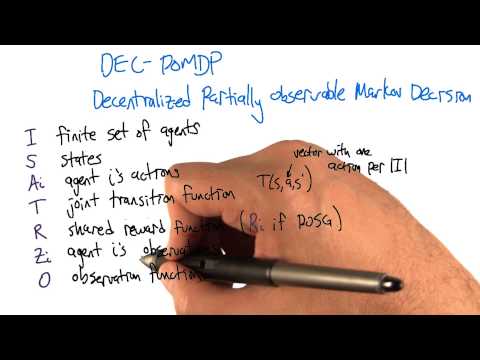 DEC-POMDP
Decentralized Partially Observable Markov Decision
I finite set of agents
S states
Ai agent i's actions
T joint transition function T(s,a,s')
vector with one
action per |I|
R shared reward function (Ri if POSG)
Zi agent i's observations
O observation function